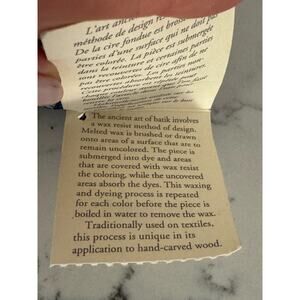 L'art ancien
méthode de design
De la cire fondue est
parties d'une surface qui ne doit pas
être colorée. La pièce est submergée
dans la teinture et certaines parties
sont recouvertes de cire afin de
recouvertes absorbent les teintures.
The ancient art of batik involves
a wax resist method of design.
Melted wax is brushed or drawn
onto areas of a surface that are to
remain uncolored. The piece is
submerged into dye and areas
that are covered with wax resist
the coloring, while the uncovered
areas absorb the dyes. This waxing
and dyeing process is repeated
for each color before the piece is
boiled in water to remove the wax.
Traditionally used on textiles,
this process is unique in its
application to hand-carved wood.